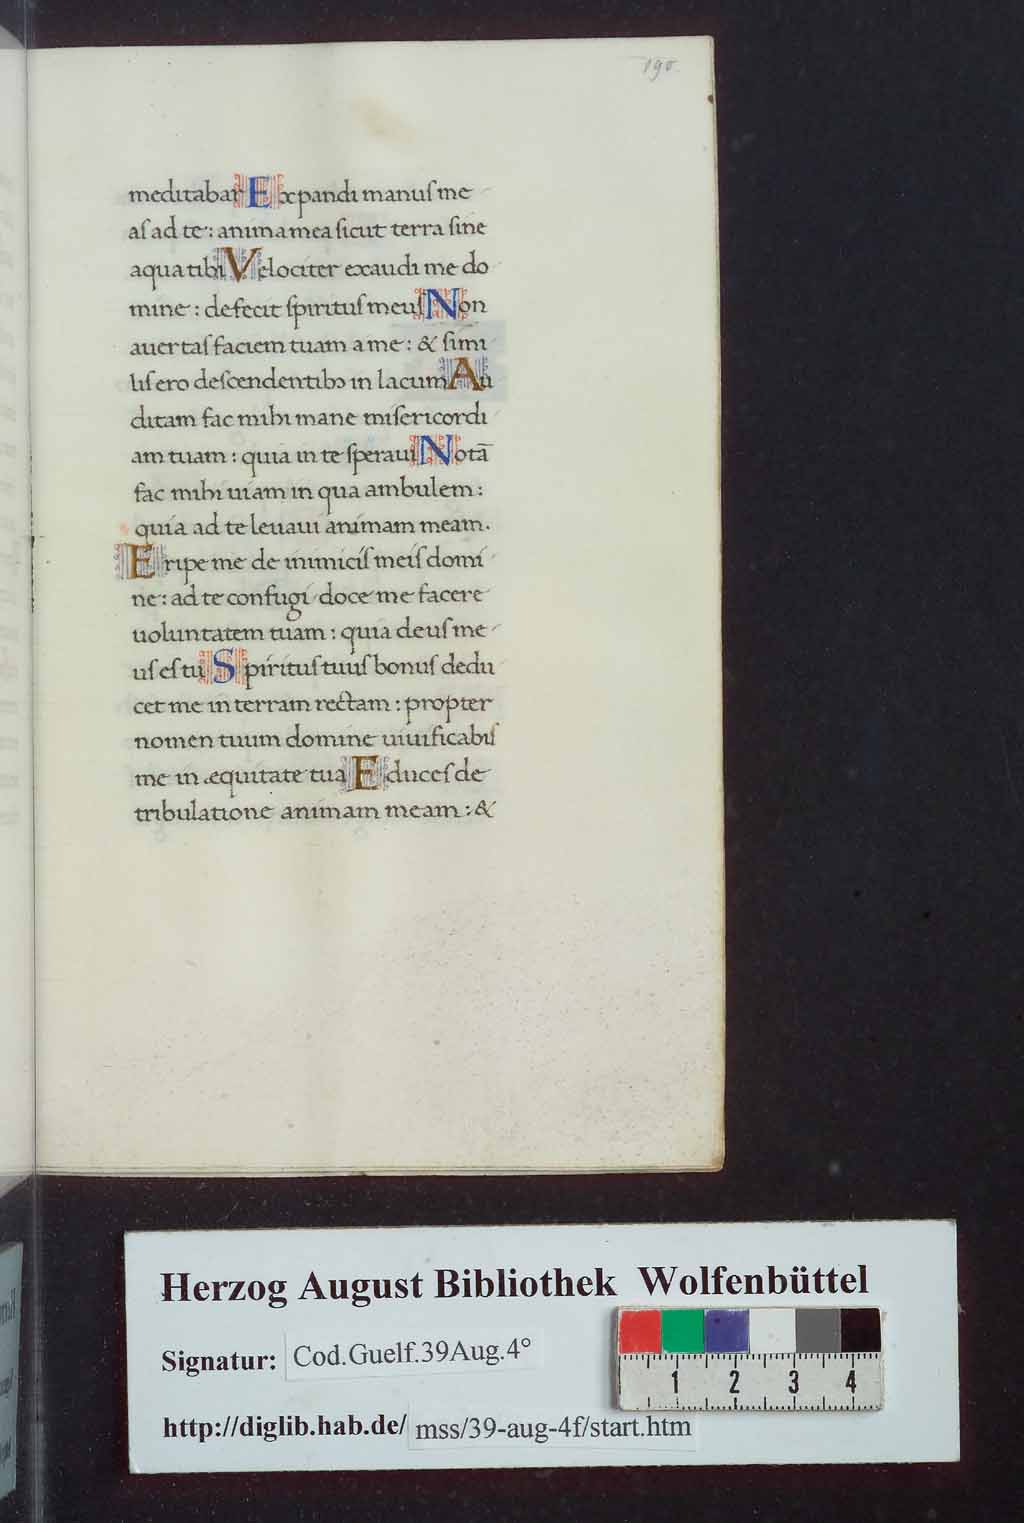 190.
meditabar Expandi manuſ me
aſ ad te: anima mea ſicut terra ſine
aqua tibi Velociter exaudi me do
mine: defecit ſpirituſ meuſ Non
auertaſ faciem tuam a me: & ſimi
liſ ero deſcendentibꝫ in lacum Au
ditam fac mihi mane miſericordi
am tuam: quia in te ſperaui Notā
fac mihi uiam in qua ambulem:
quia ad te leuaui animam meam.
Eripe me de inimiciſ meiſ domi
ne: ad te confugi doce me facere
uoluntatem tuam: quia deuſ me
uſ eſ tu Spirituſ tuuſ bonuſ dedu
cet me in terram rectam: propter
nomen tuum domine uiuificabiſ
me in æquitate tua Educeſ de
tribulatione animam meam: &
Herzog August Bibliothek Wolfenbüttel
Signatur: Cod.Guelf.39Aug.4°
1 2 3 4
http://diglib.hab.de/ mss/39-aug-4f/start.htm